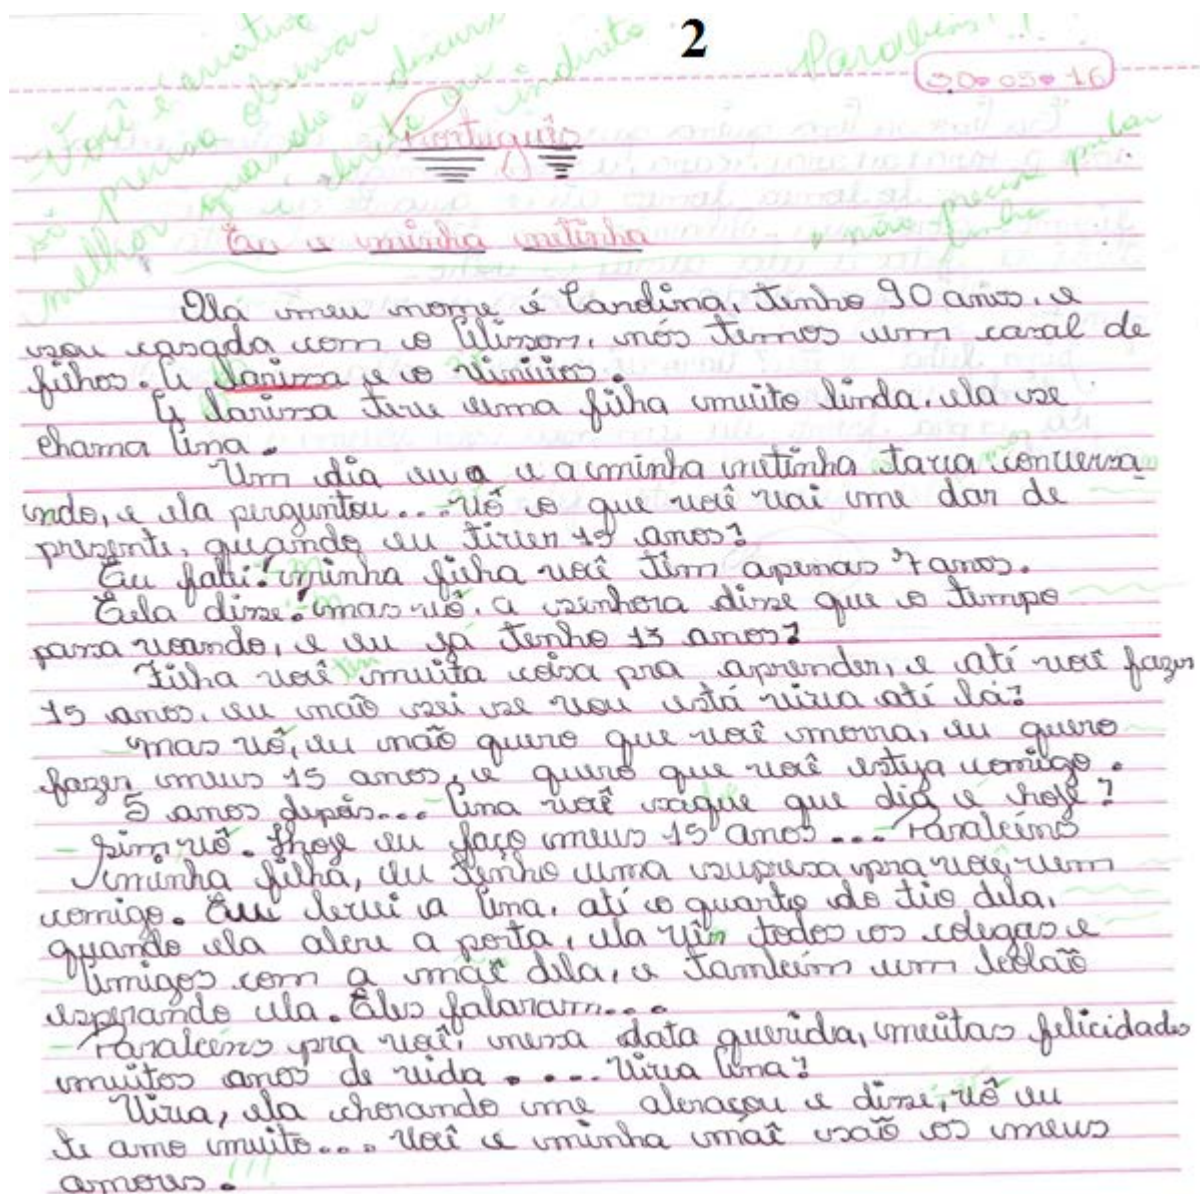 2
Parabéns!!
Você é criativa
só precisa observar
melhor quando o discurso
é direto ou indireto
30 05 16
Português
não precisa pular
linha
Eu e minha netinha
Ola meu nome é Carolina, tenho 90 anos, e
sou casada com o Alisson, nós temos um casal de
filhos. A Larissa e o Vinicios.
A larissa teve uma filha muito linda, ela se
chama Ana.
Um dia eu e a minha netinha tava conversa
ndo, e ela perguntou... Vô o que você vai me dar de
presente, quando eu tiver 15 anos?
Eu falei: minha filha você têm apenas 7 anos.
Eela disse: mas vô, a senhora disse que o tempo
passa voando, e eu ja tenho 13 anos?
Filha você tem muita coisa pra aprender, e até você fazer
15 anos, eu não sei se vou está viva até lá?
mas vô, eu não quero que você morra, eu quero
fazer meus 15 anos, e quero que você esteja comigo.
5 anos depois... Ana você que dia e hoje?
Sim vô. Hoje eu faço meus 15 anos... Parabéns
minha filha, eu tenho uma supresa pra você vem
comigo. Eu levei a Ana, até o quarto do tio dela,
quando ela abre a porta, ela vê todos os colegas e
Amigos com a mãe dela, e também um bolão
esperando ela. Eles falaram...
Parabéns pra você, nessa data querida, muitas felicidades
muitos anos de vida.... Viva Ana?
Viva, ela chorando me abraçou e disse, vô eu
te amo muito... Você e minha mãe são os meus
amores. !!!